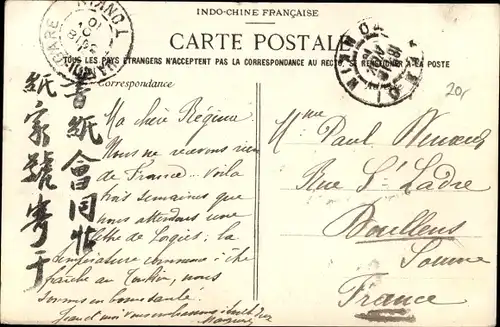 INDO-CHINE FRANÇAISE
CARTE POSTALE
TOUS LES PAYS ÉTRANGERS N'ACCEPTENT PAS LA CORRESPONDANCE AU RECTO. SE RENSEIGNER À LA POSTE
Correspondance
20,
書紙會同帖
紙家號寄于
Ma chère Régina
Nous ne recevons rien
de France. Voila
trois semaines que
nous attendons une
lettre de Logies; la
température commence à être
fraîche au Tonkin, nous
sommes en bonne santé.
Jean et moi vous embrassons
Mme Paul
Rue St Ladre
Doullens
Somme
France